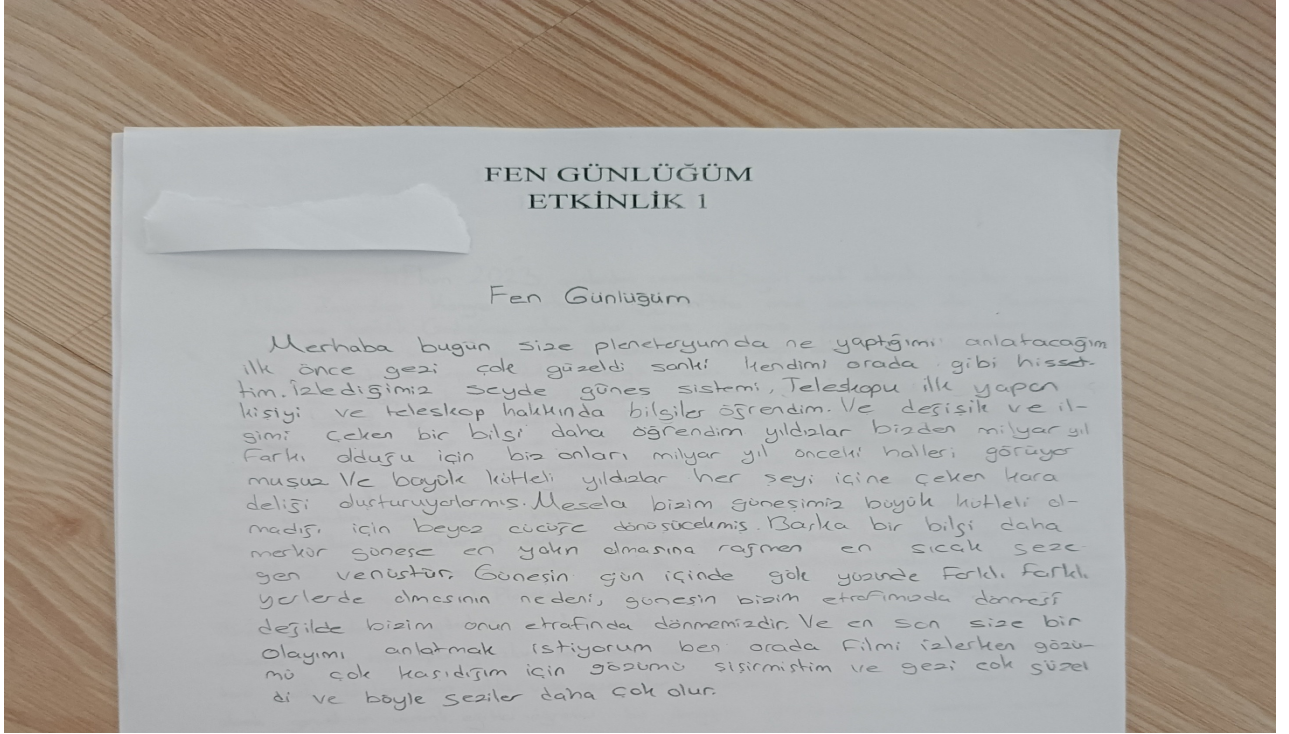 FEN GÜNLÜĞÜM
ETKİNLİK 1
Fen Günlüğüm
Merhaba bugün size pleneteryumda ne yaptığımı anlatacağım
ilk önce gezi çok güzeldi sanki kendimi orada gibi hisset-
tim. İzlediğimiz şeyde güneş sistemi, Teleskopu ilk yapan
kişiyi ve teleskop hakkında bilgiler öğrendim. Ve değişik ve il-
gimi çeken bir bilgi daha öğrendim yıldızlar bizden milyar yıl
farkı olduğu için biz onları milyar yıl önceki halleri görüyor
muşuz Ve büyük kütleli yıldızlar her şeyi içine çeken kara
deliği oluşturuyorlarmış. Mesela bizim güneşimiz büyük kütleli ol-
madığı için beyaz cücüğe dönüşücekmiş. Başka bir bilgi daha
merkür güneşe en yakın olmasına rağmen en sıcak geze
gen venüstür. Güneşin gün içinde gök yüzünde farklı farklı
yerlerde olmasının nedeni, güneşin bizim etrafımızda dönmesi
değilde bizim onun etrafında dönmemizdir. Ve en son size bir
olayımı anlatmak istiyorum ben orada filmi izlerken gözü-
mü çok kaşıdığım için gözümü şişirmiştim ve gezi çok güzel
di ve böyle geziler daha çok olur.